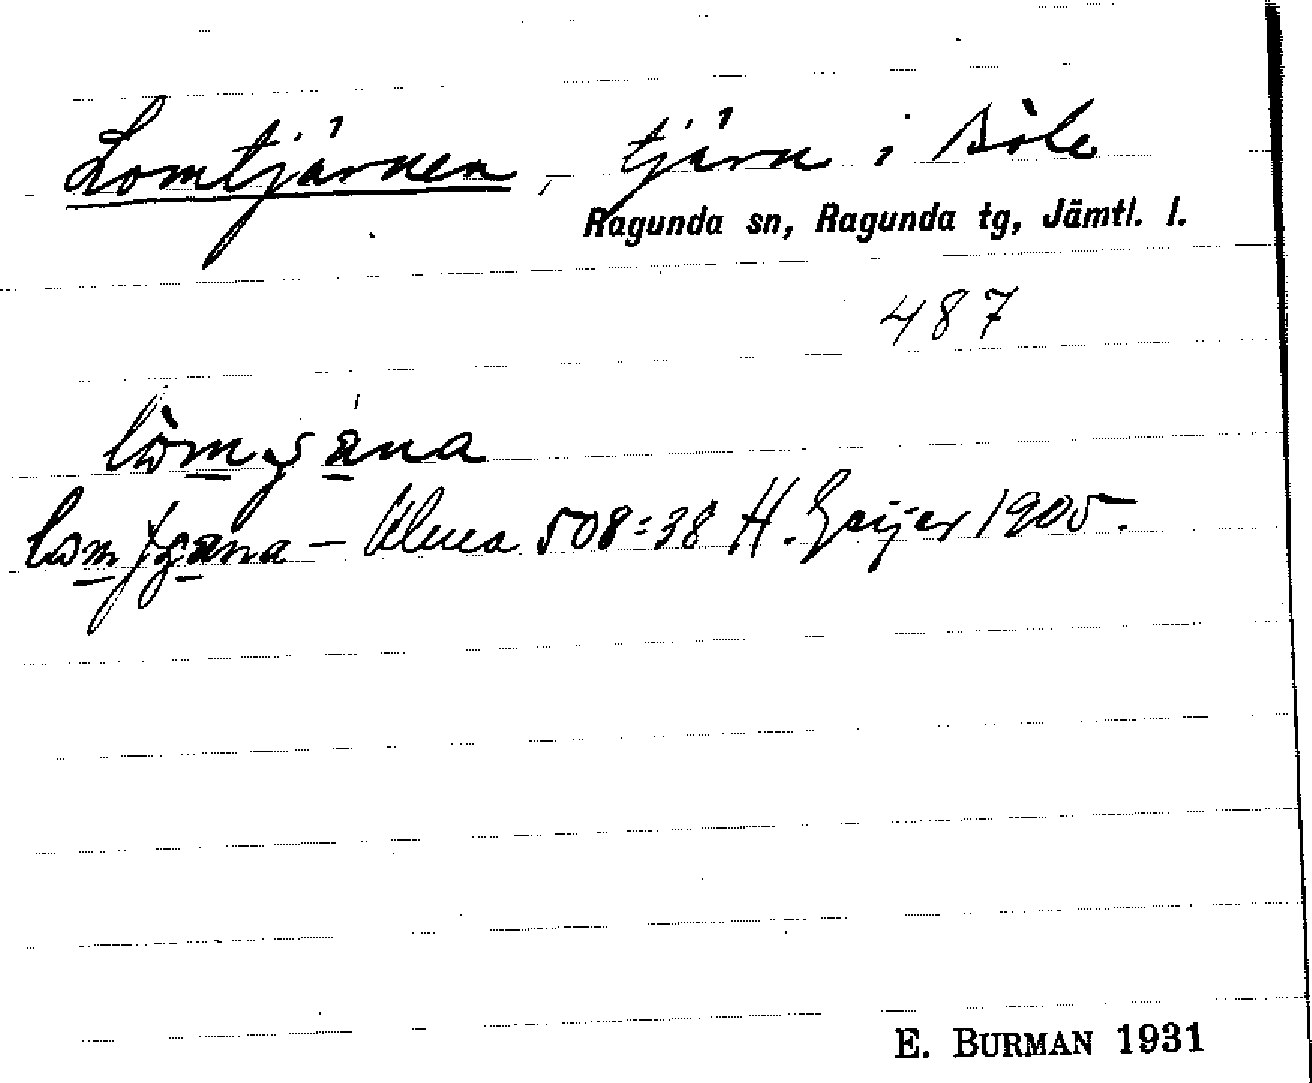 Lomtjärnen, tjärn i Böle
Ragunda sn, Ragunda tg, Jämtl. l.
487
508:38 H. Geijer 1905.
E. BURMAN 1931